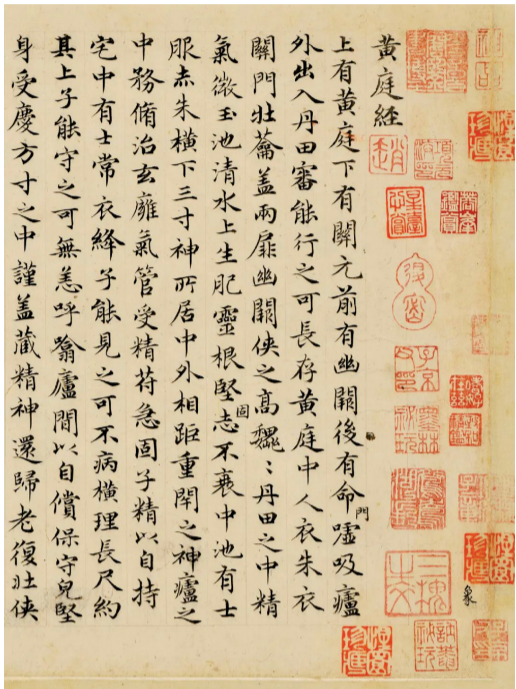 黄庭経
上有黄庭下有關元前有幽闕後有命門嘘吸廬
外出入丹田審能行之可長存黄庭中人衣朱衣
關門壯蘥盖兩扉幽闕俠之高巍〻丹田之中精
氣微玉池清水上生肥靈根堅固志不衰中池有士
服赤朱橫下三寸神所居中外相距重閉之神廬之
中務脩治玄癰氣管受精苻急固子精以自持
宅中有士常衣絳子能見之可不病橫理長尺約
其上子能守之可無恙呼翕廬間以自償保守皃堅
身受慶方寸之中謹盖藏精神還歸老復壯俠
趙
子京父印
墨林秘玩
象